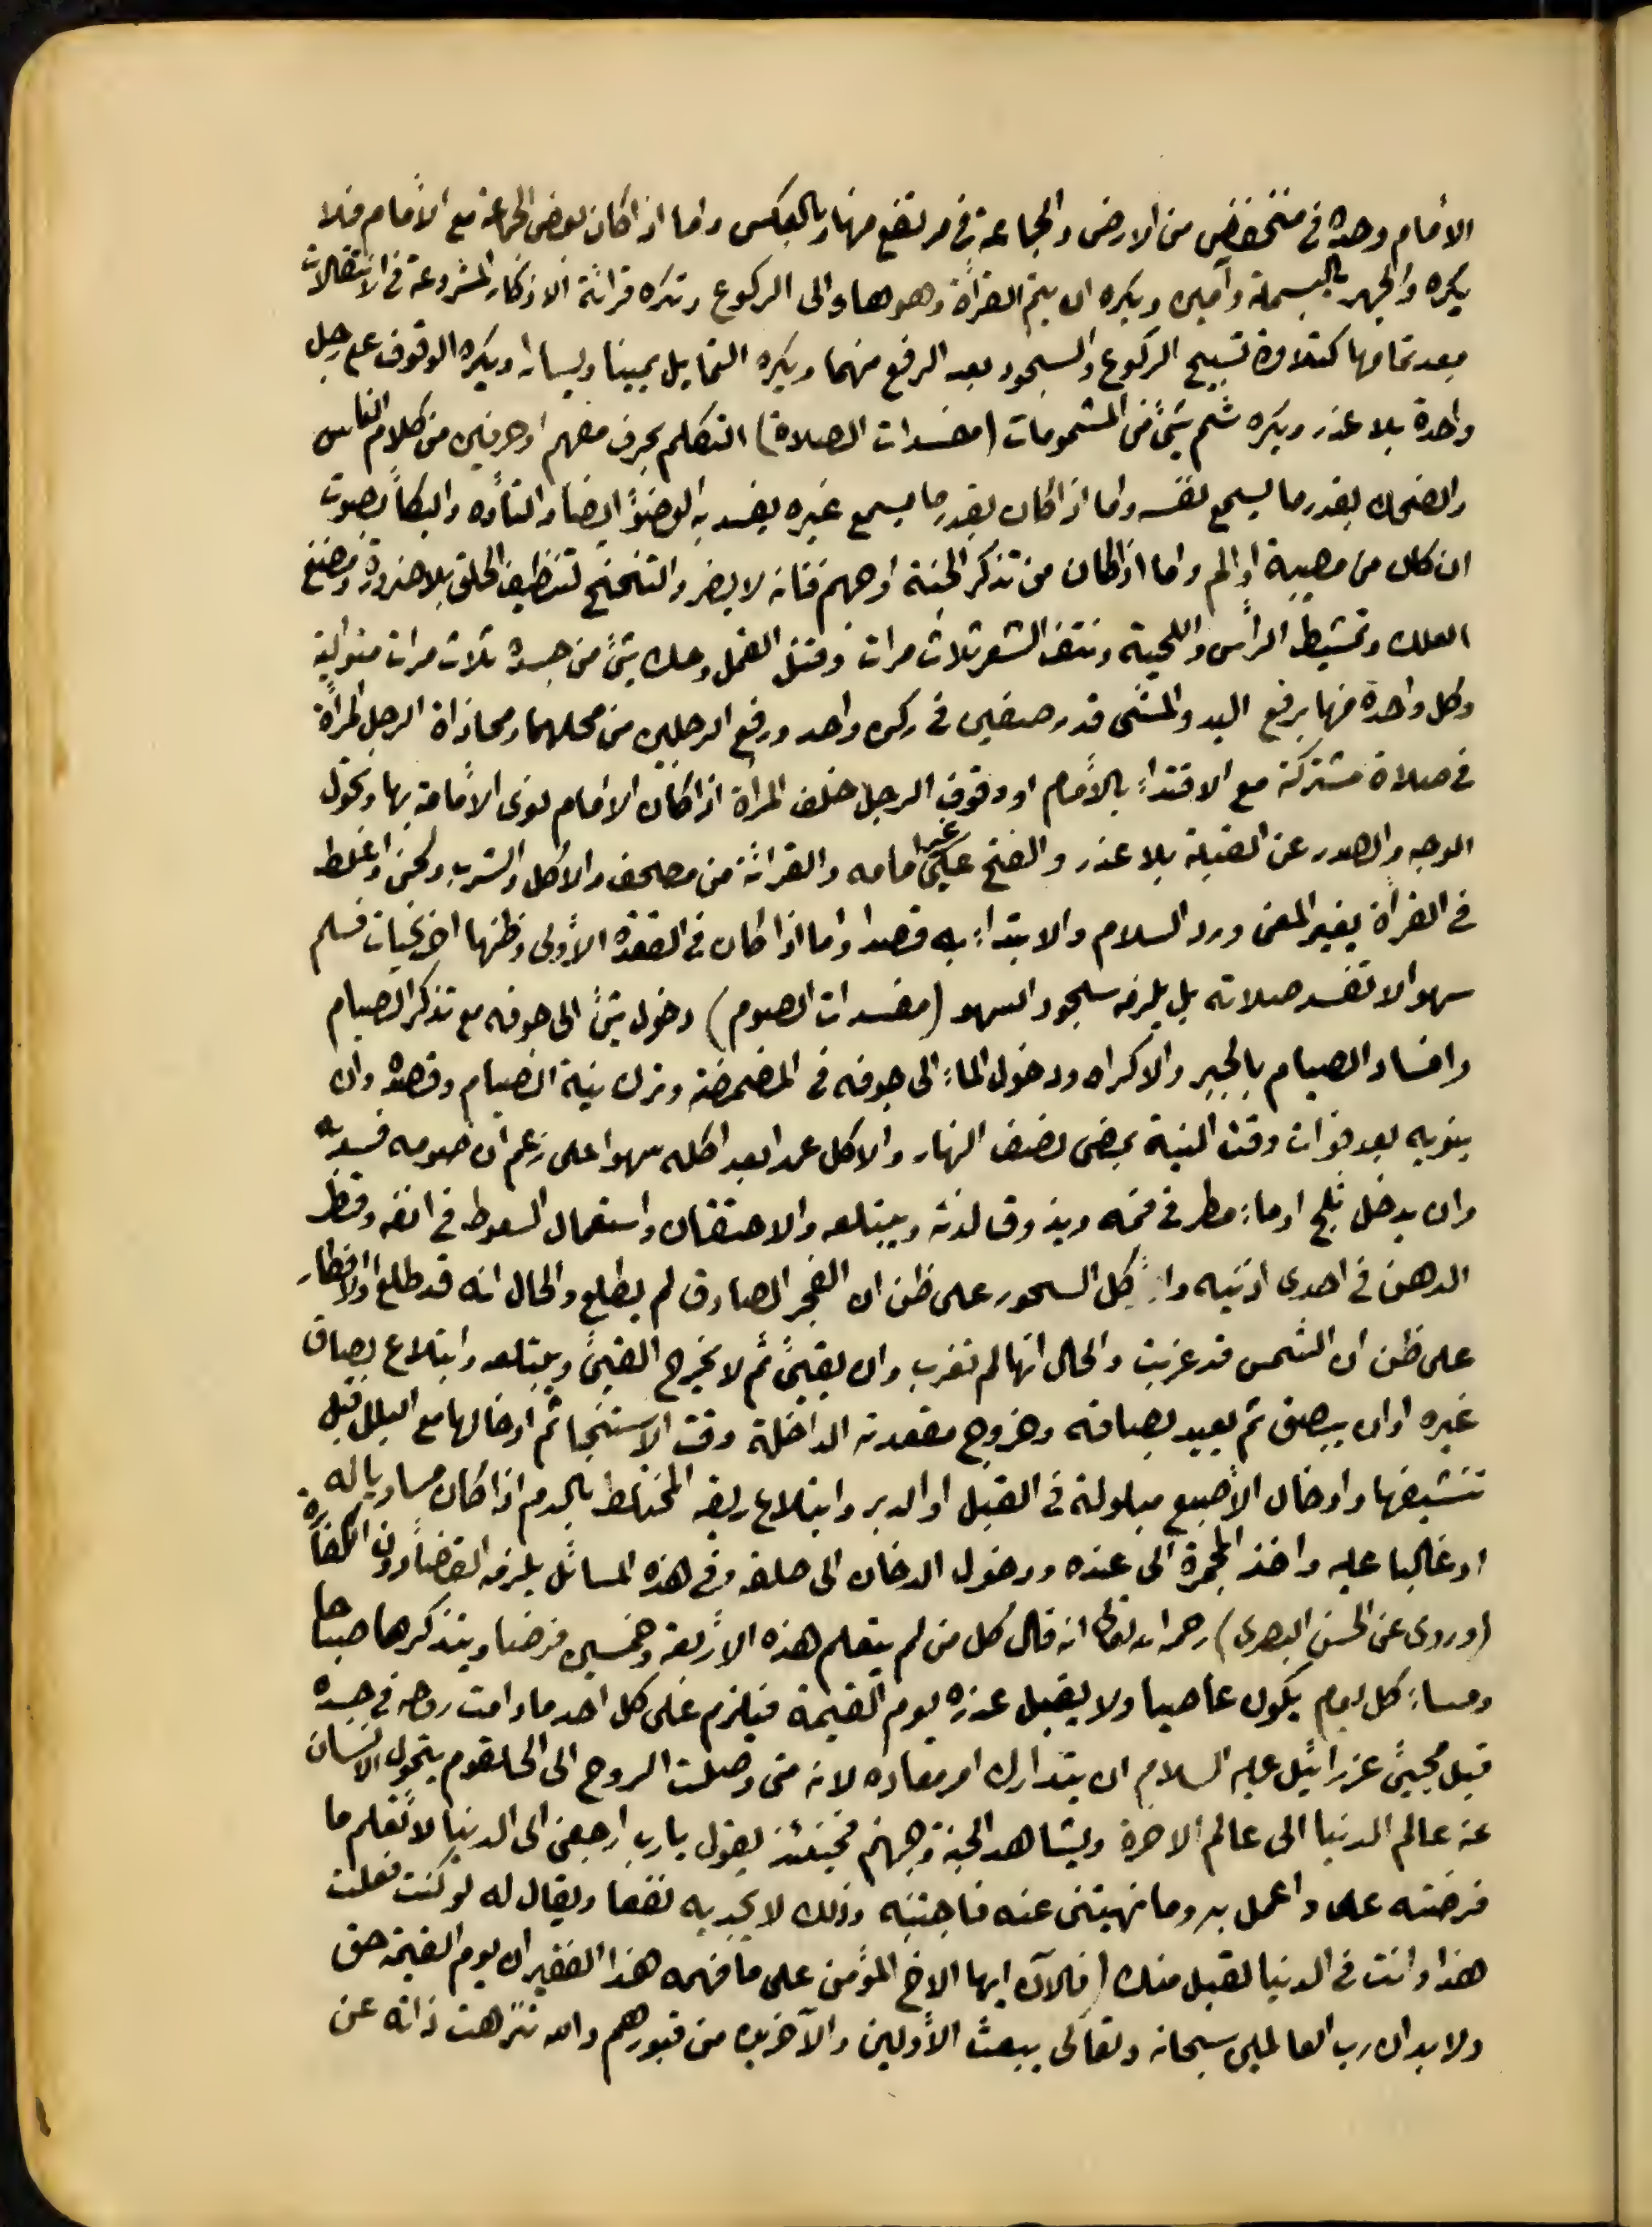 الأمام وحده فى منخفض من الارض والجماعة فى مرتفع منها وبالعكس واما اذا كان بعض الجماعة مع الأمام فلا
يكره والجهر بالبسملة وآمين ويكره ان يتم القرأة وهو هاو الى الركوع وتكره قرائة الاذكار المشروعة فى الانتقالات
بعد تمامها كتلاوة تسبيح الركوع والسجود بعد الرفع منهما ويكره التمايل يمينا ويسارا ويكره الوقوف على رجل
واحدة بلا عذر ويكره شم شئ من المشمومات (مفسدات الصلاة) التكلم بحرف مفهم او حرفين من كلام الناس
والضحك بقدر ما يسمع نفسه واما اذا كان بقدر ما يسمع غيره يفسد به الوضؤ ايضا والتأوه والبكأ بصوت
ان كان من مصيبة او الم واما اذا كان من تذكر الجنة او جهنم فانه لا يضر والتنحنح لتنظيف الحلق بلا ضرورة ومضغ
العلك وتمشيط الرأس واللحية ونتف الشعر ثلاث مرات وقتل القمل وحك شئ من جسده ثلاث مرات متوالية
وكل واحدة منها برفع اليد والمشى قدر صفين فى ركن واحد ورفع الرجلين من محلهما ومحاذاة الرجل المرأة
فى صلاة مشتركة مع الاقتدأ بالأمام او وقوف الرجل خلف المرأة اذا كان الأمام نوى الأمامة بها وتحول
الوجه والصدر عن القبلة بلا عذر والفتح على غير امامه والقرائة من مصحف والاكل والشرب ولحن او غلط
فى القرأة يغير المعنى ورد السلام والابتدأ به قصدا واما اذا كان فى القعدة الأولى وظنها اخر تحيات فسلم
سهوا لا تفسد صلاته بل يلزمه سجود السهو (مفسدات الصوم) دخول شئ الى جوفه مع تذكر الصيام
وافساد الصيام بالجبر والاكراه ودخول المأ الى جوفه فى المضمضة وترك نية الصيام وقصده وان
ينويه بعد فوات وقت النية بمضى نصف النهار والاكل عمدا بعد اكله سهوا على زعم ان صومه فسد به
وان يدخل ثلج او مأ مطر فى فمه ويذوق لذته ويبتلعه والاحتقان واستعمال السعوط فى انفه وقطر
الدهن فى احدى اذنيه واكل السحور على ظن ان الفجر الصادق لم يطلع والحال انه قد طلع والافطار
على ظن ان الشمس قد غربت والحال انها لم تغرب وان يقيئ ثم لا يخرج القيئ ويبتلعه وابتلاع بصاق
غيره او ان يبصق ثم يعيد بصاقه وخروج مقعدته الداخلة وقت الاستنجا ثم ادخالها مع البلل قبل
تنشيفها وادخال الأصبع مبلولة فى القبل او الدبر وابتلاع ريقه المختلط بالدم اذا كان مساويا له
او غالبا عليه واخذ المجمرة الى عنده ودخول الدخان الى حلقه وفى هذه المسائل يلزمه القضأ دون الكفارة
(وروى عن الحسن البصرى) رحمه الله تعالى انه قال كل من لم يتعلم هذه الأربعة وخمسين فرضا ويتذكرها صباحا
ومسأ كل يوم يكون عاصيا ولا يقبل عذره يوم القيمة فيلزم على كل احد ما دامت روحه فى جسده
قبل مجيئ عزرائيل عليه السلام ان يتدارك امر معاده لانه متى وصلت الروح الى الحلقوم يتحول الانسان
عن عالم الدنيا الى عالم الاخرة ويشاهد الجنة وجهنم فحينئذ يقول يا رب ارجعنى الى الدنيا لأتعلم ما
فرضته على واعمل به وما نهيتنى عنه فاجتنبه وذلك لا يجديه نفعا ويقال له لو كنت فعلت
هذا وانت فى الدنيا لقبل منك (فالآن ايها الاخ المؤمن على ما فهمه هذا الفقير ان يوم القيمة حق
ولا بد ان رب العالمين سبحانه وتعالى يبعث الأولين والآخرين من قبورهم والله تنزهت ذاته عن